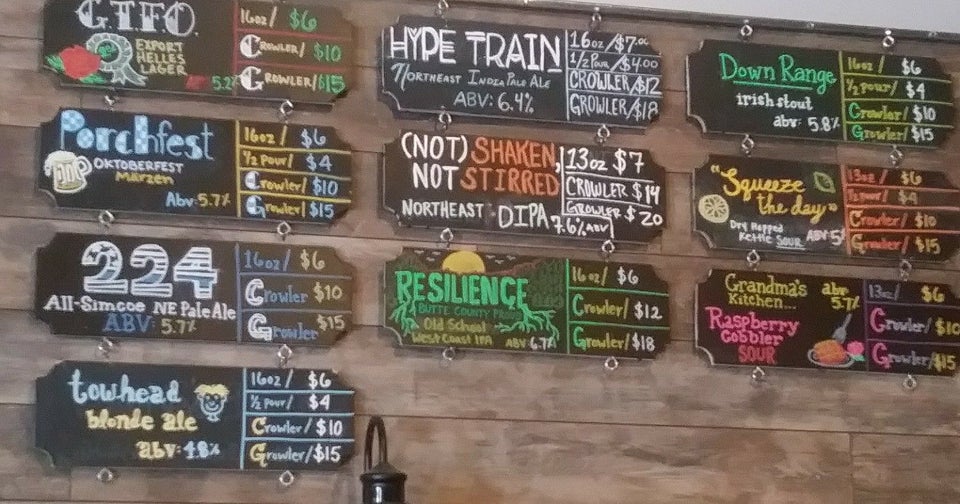 G.T.F.O.
EXPORT
HELLES
LAGER
5.2%
16oz/ $6
Crowler/ $10
Growler/ $15
Porchfest
OKTOBERFEST
MARZEN
Abv 5.7%
16oz/ $6
1/2 Pour/ $4
Crowler/ $10
Growler/ $15
224
All-Simcoe NE Pale Ale
ABV: 5.7%
16oz/ $6
Crowler $10
Growler $15
towhead
blonde ale
abv: 4.8%
16oz/ $6
1/2 pour/ $4
Crowler/ $10
Growler/ $15
HYPE TRAIN
Northeast India Pale Ale
ABV: 6.4%
16oz/$7.00
1/2 Pour/$4.00
CROWLER/$12
GROWLER/$18
(NOT) SHAKEN,
NOT STIRRED
NORTHEAST DIPA 7.6% ABV
13oz $7
CROWLER $14
GROWLER $20
RESILIENCE
BUTTE COUNTY PROUD
Old School
West Coast IPA ABV 6.7%
16oz/ $6
Crowler/ $12
Growler/ $18
Down Range
irish stout
abv: 5.8%
16oz/ $6
1/2 pour/ $4
Crowler/ $10
Growler/ $15
"Squeeze
the day"
Dry Hopped
Kettle SOUR ABV 5%
13oz/ $6
1/2 pour/ $4
Crowler/ $10
Growler/ $15
Grandma's
Kitchen... abv
5.7%
Raspberry
Cobbler
SOUR
13oz/ $6
Crowler/ $10
Growler/$15